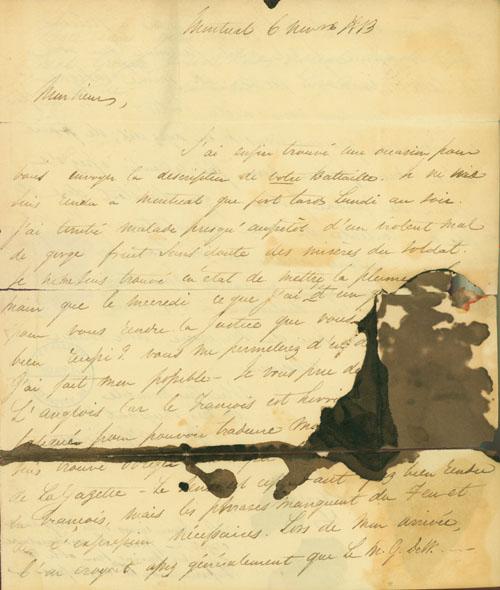 Montreal 6 Novre 1813
Monsieur,
J'ai enfin trouvé une occasion pour
vous envoyer la description de votre Bataille. Je ne me
suis rendu à Montreal que fort tard Lundi au soir.
J'ai tombé malade presqu'aussitôt d'un violent mal
de gorge fruit sans doute des misères du soldat.
Je ne me suis trouvé en état de mettre la plume
main que le mecredi ce que j'ai
pour vous rendre la justice que vous
bien vous me permeterez d'
J'ai fait mon possible – Je vous prie de
L'anglois Car le François est
pour pouvoir traduire
suis trouvé
de La Gazette – Le cependant assez bien rendu
en Francois, mais les phrases manquent du feu et
de l'expression nécessaires. Lors de mon arrivée,
L'on croyoit assez généralement que Le M. G. DeW.